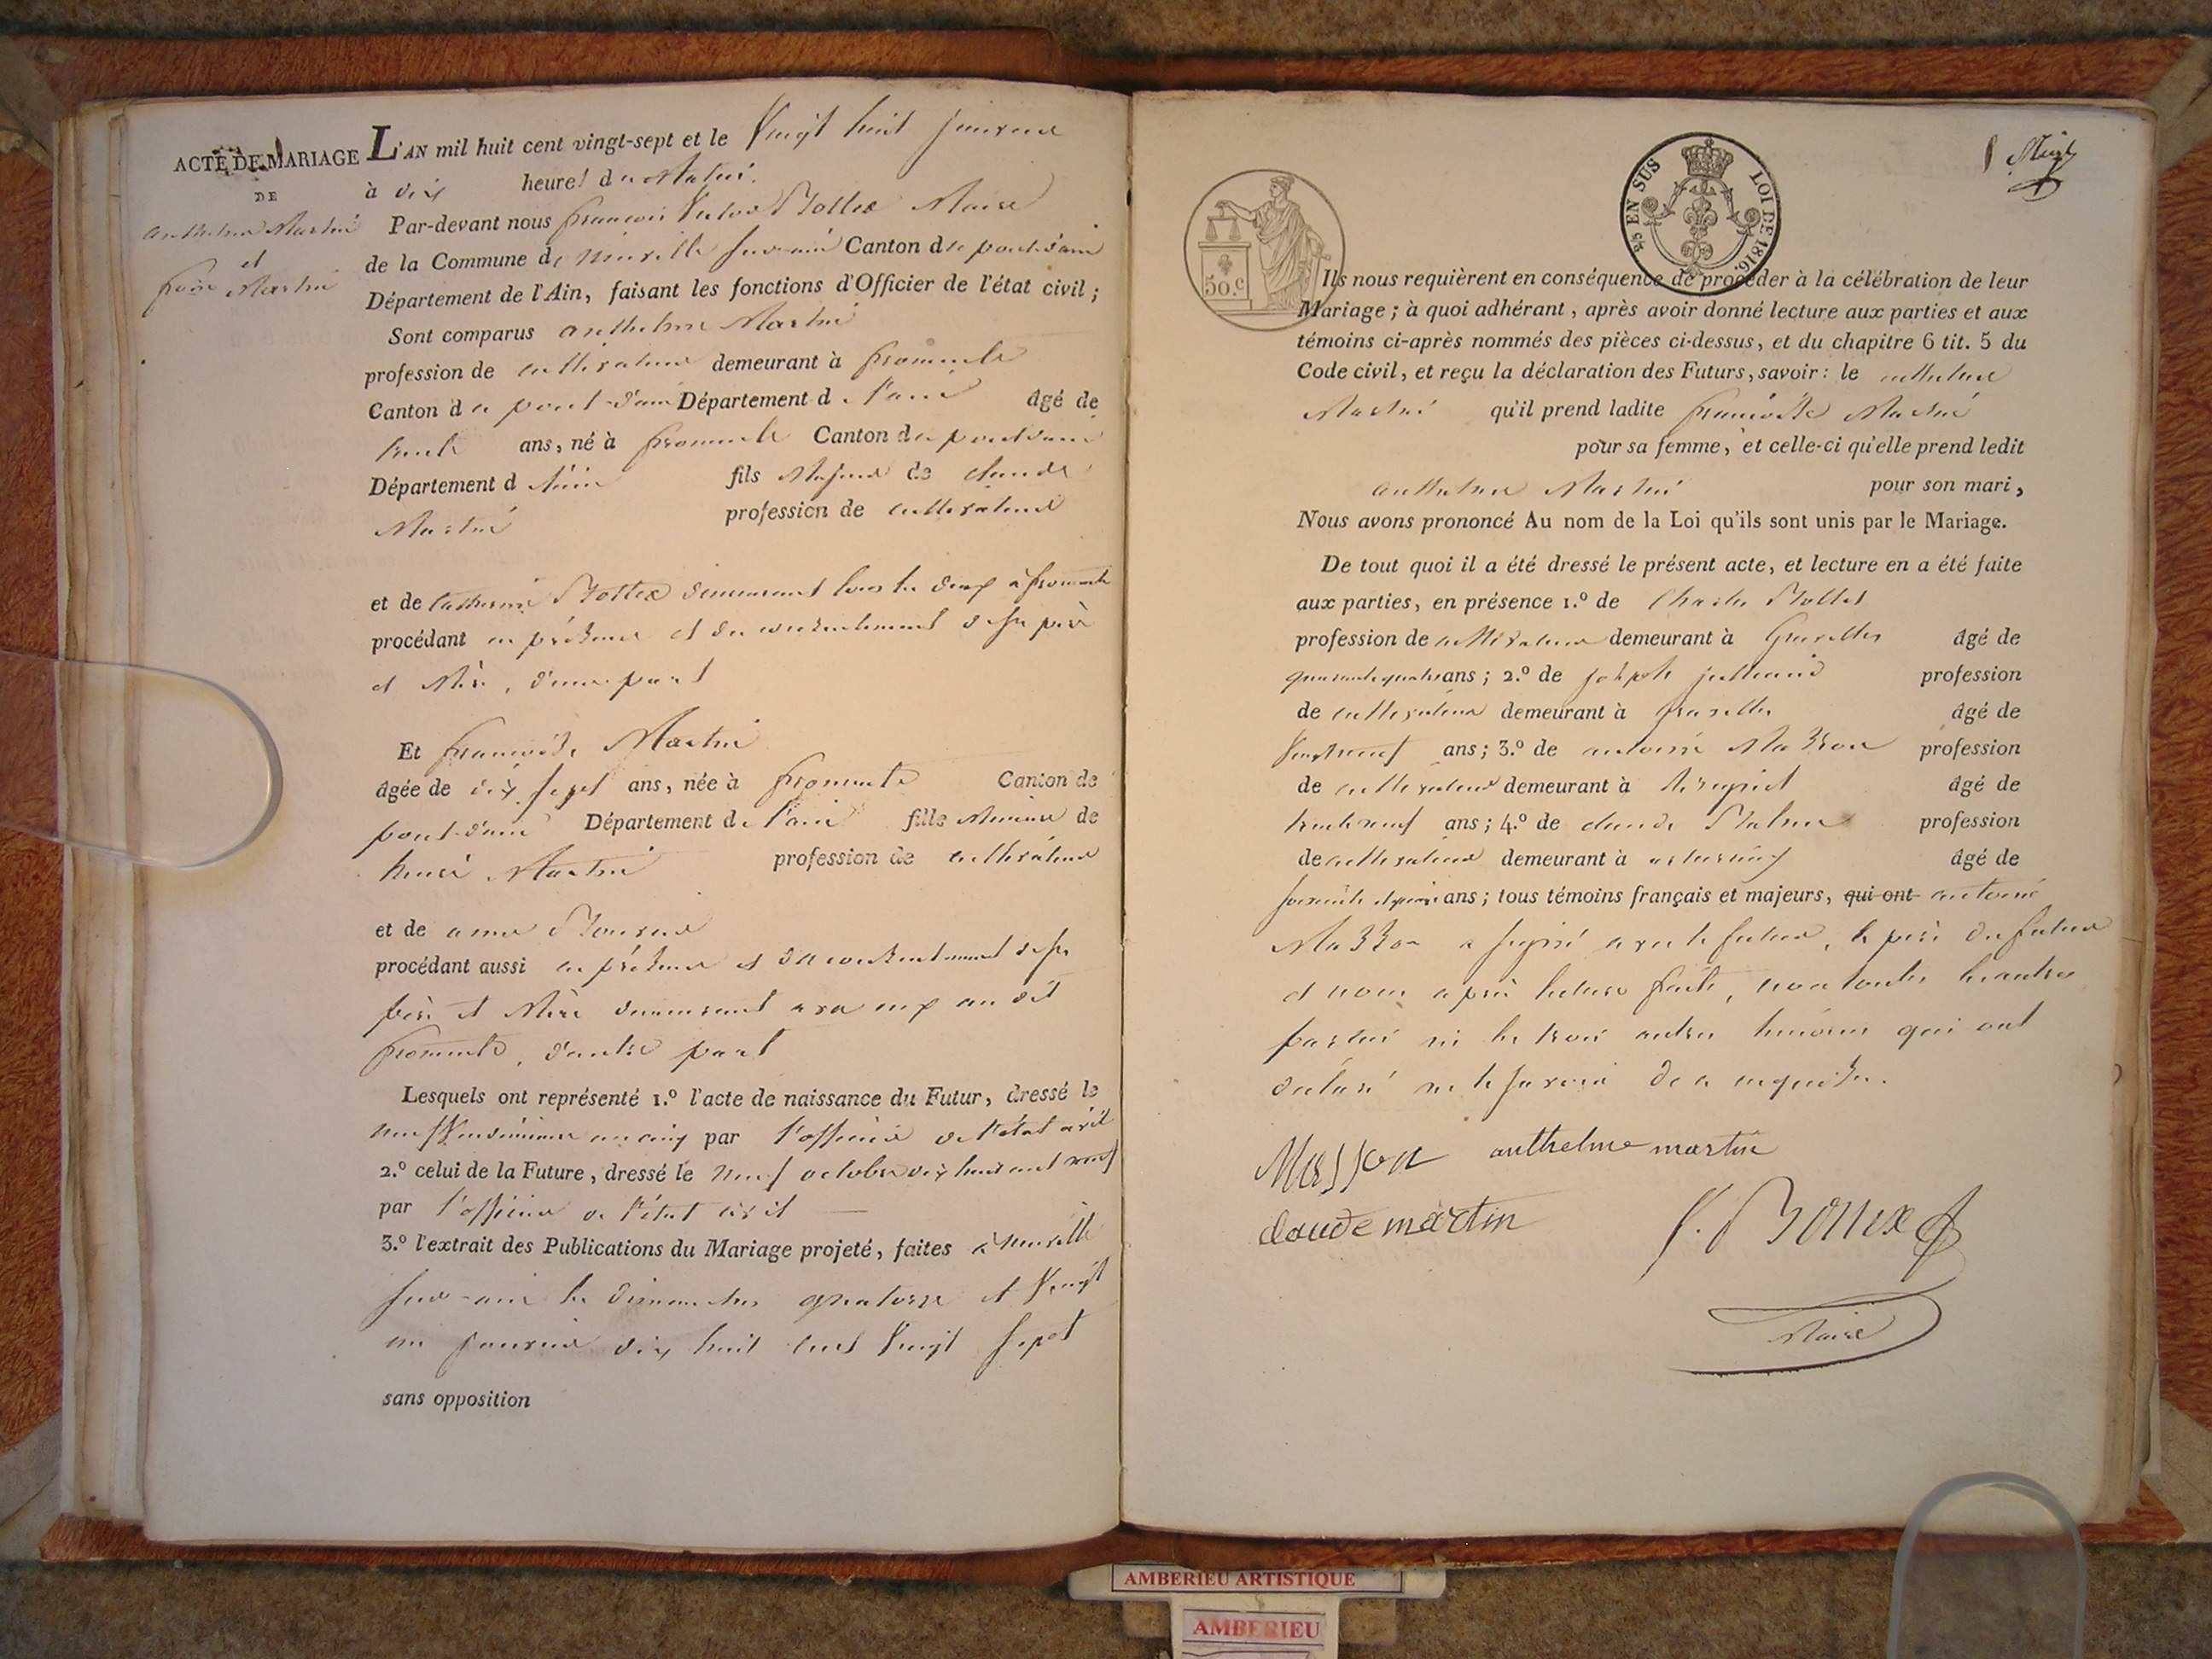 ACTE DE MARIAGE
DE
anthelme Martin
et
foise Martin
L'AN mil huit cent vingt-sept et le Vingt huit janvier
à dix heures du Matin.
Par-devant nous francois Victor Bottex Maire
de la Commune de neuville sur-ain Canton de pont-d'ain
Département de l'Ain, faisant les fonctions d'Officier de l'état civil;
Sont comparus anthelme Martin
profession de cultivateur demeurant à fromente
Canton de pont-d'ain Département de l'ain âgé de
trente ans, né à fromente Canton de pontdain
Département d l'ain fils Majeur de claude
Martin profession de cultivateur
et de Catherine Bottex demeurant tous les deux à fromente
procédant en présence et du consentement de ses père
et Mère, d'une part
Et francoise Martin
âgée de dix sept ans, née à fromente Canton de
pont-d'ain Département de l'ain fille Mineure de
profession de cultivateur
et de
procédant aussi en présence et du consentement de ses
père et Mère demeurant avec eux au dit
fromente, d'autre part
Lesquels ont représenté 1.º l'acte de naissance du Futur, dressé le
neuf Vendémiaire an cinq par l'officier de l'état civil
2.º celui de la Future, dressé le neuf octobre dix huit cent neuf
par l'officier de l'état civil
3.º l'extrait des Publications du Mariage projeté, faites à neuville
sur-ain les dimanches quatorze et Vingt
un janvier dix huit cent Vingt sept
sans opposition
50.c
2/5 EN SUS LOI DE 1816.
Ils nous requièrent en conséquence de procéder à la célébration de leur
Mariage; à quoi adhérant, après avoir donné lecture aux parties et aux
témoins ci-après nommés des pièces ci-dessus, et du chapitre 6 tit. 5 du
Code civil, et reçu la déclaration des Futurs, savoir: le anthelme
Martin qu'il prend ladite francoise Martin
pour sa femme, et celle-ci qu'elle prend ledit
anthelme Martin pour son mari,
Nous avons prononcé Au nom de la Loi qu'ils sont unis par le Mariage.
De tout quoi il a été dressé le présent acte, et lecture en a été faite
aux parties, en présence 1.º de Charles
profession de cultivateur demeurant à âgé de
quarante quatre ans; 2.º de joseph profession
de cultivateur demeurant à âgé de
Vingt neuf ans; 3.º de antoine Mazzon profession
de cultivateur demeurant à âgé de
trente neuf ans; 4.º de claude profession
de cultivateur demeurant à âgé de
ans; tous témoins français et majeurs, qui ont antoine
Mazzon a signé avec le futur, le père du futur
et nous après lecture faite, non toutes les autres
parties ni les trois autres témoins qui ont
déclaré ne le savoir de ce enquis.
Masson anthelme martin
claude martin
f. Bottex
Maire
AMBERIEU ARTISTIQUE
AMBERIEU